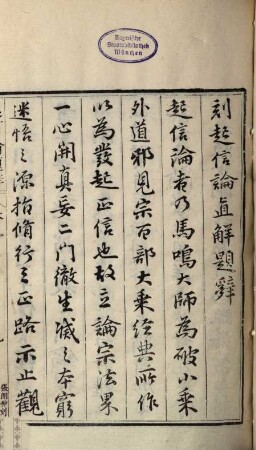 Bayerische
Staatsbibliothek
München
刻起信論直解題辭
起信論者乃馬鳴大師為破小乗
外道邪見宗百部大乗經典所作
以為發起正信也故立論宗法界
一心開真妄二門徹生滅之本窮
迷悟之源指脩行之正路示止觀